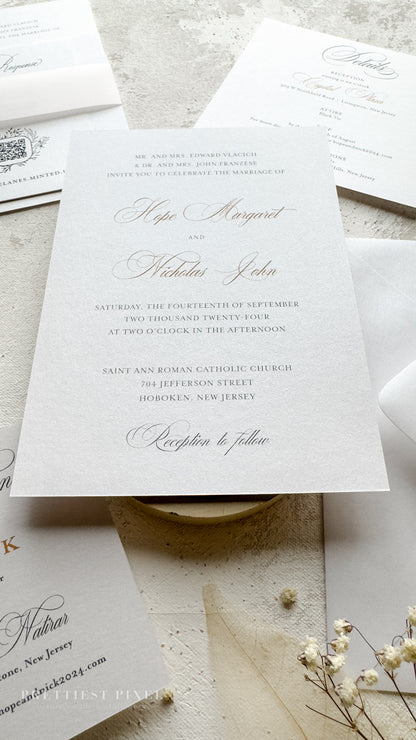 MR. AND MRS. EDWARD VLACICH
& DR. AND MRS. JOHN FRANZESE
INVITE YOU TO CELEBRATE THE MARRIAGE OF
Hope Margaret
AND
Nicholas John
SATURDAY, THE FOURTEENTH OF SEPTEMBER
TWO THOUSAND TWENTY-FOUR
AT TWO O'CLOCK IN THE AFTERNOON
SAINT ANN ROMAN CATHOLIC CHURCH
704 JEFFERSON STREET
HOBOKEN, NEW JERSEY
Reception to follow
Response
LANES.MINTED.
Details
RECEPTION
Crystal Plaza
Livingston, New Jersey
ATTIRE
Black Tie
of August
Hills, New Jersey
K
Natirar
stone, New Jersey
hopeandnick2024.com
PRETTIEST PIXEL